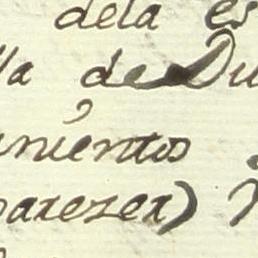 dela es
lla de Du
nientos
parezer)